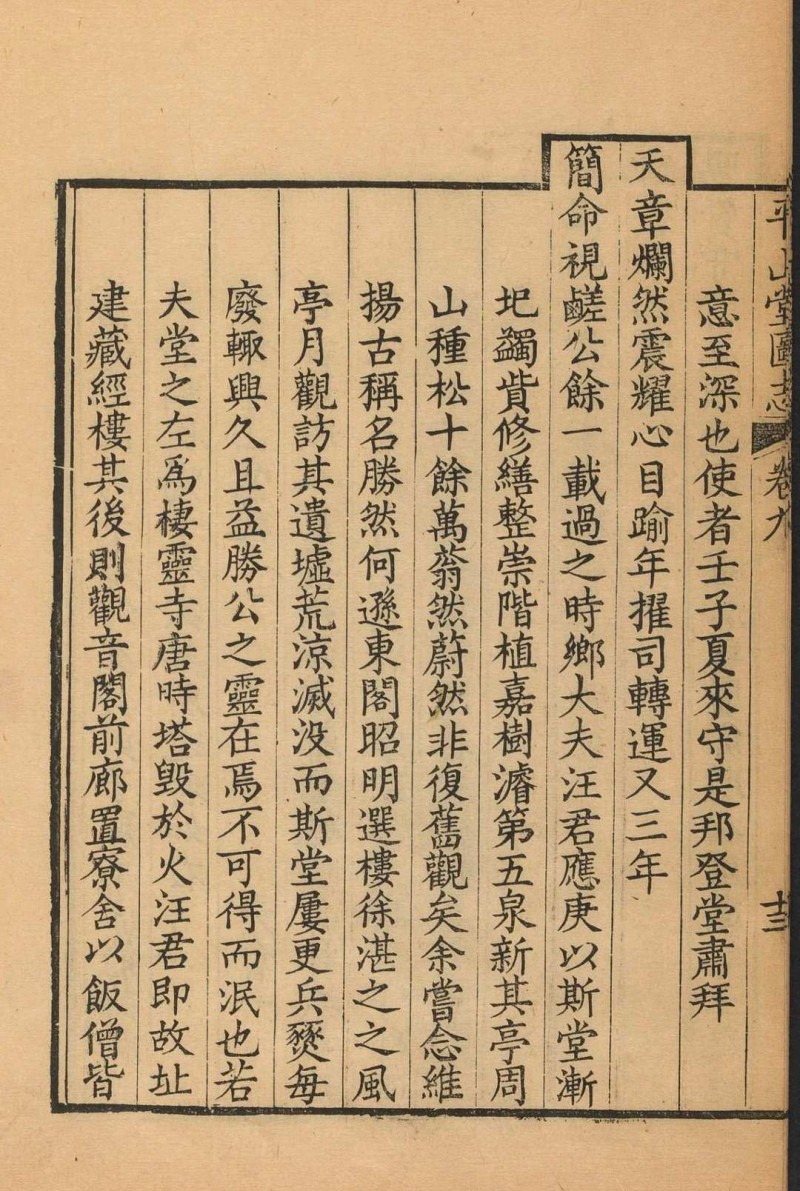 平山堂圖志 卷九 十三
意至深也使者壬子夏來守是邦登堂肅拜
天章爛然震耀心目踰年擢司轉運又三年
簡命視鹺公餘一載過之時鄉大夫汪君應庚以斯堂漸
圮蠲貲修繕整崇階植嘉樹濬第五泉新其亭周
山種松十餘萬蓊然蔚然非復舊觀矣余嘗念維
揚古稱名勝然何遜東閣昭明選樓徐湛之之風
亭月觀訪其遺墟荒涼滅没而斯堂屢更兵燹每
廢輙興久且益勝公之靈在焉不可得而泯也若
夫堂之左爲棲靈寺唐時塔毀於火汪君即故址
建藏經樓其後則觀音閣前廊置寮舍以飯僧皆